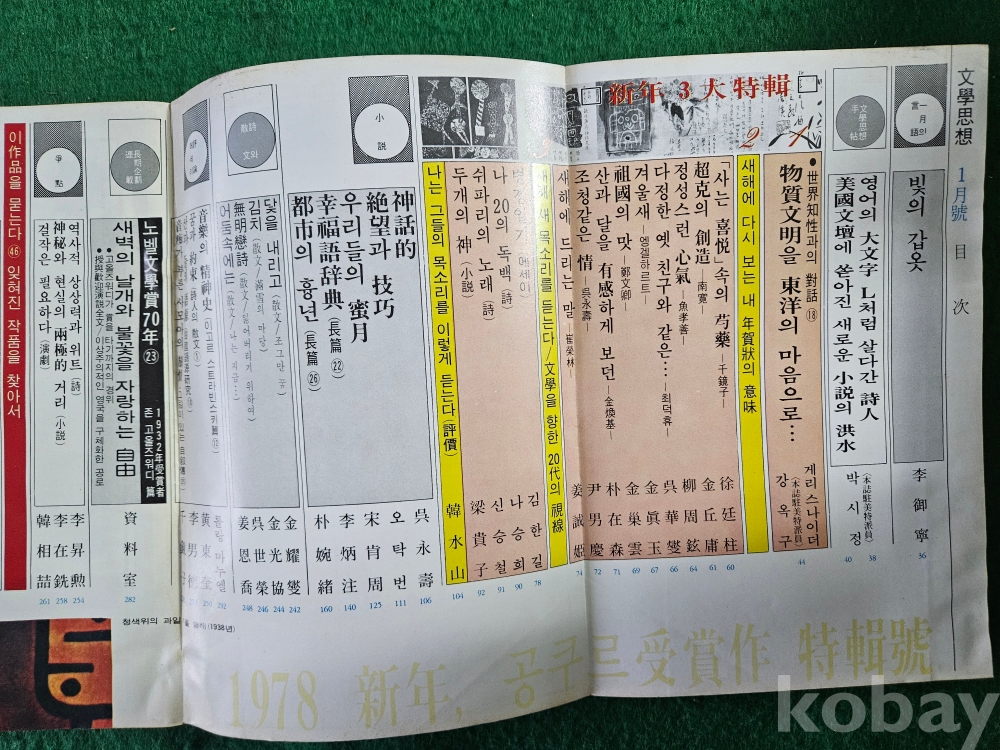 文學思想 1月號 目次
一月의 言
빛의 갑옷
李御寧
36
文學思想 手帖
영어의 大文字 L처럼 살다간 詩人
38
美國文壇에 쏟아진 새로운 小說의 洪水
(本誌駐美特派員)
박시정
40
新年 3大特輯
1
•世界知性과의 對話 ⑱
物質文明을 東洋의 마음으로…
게리 스나이더
(本誌駐美特派員)
강옥구
44
2
새해에 다시 보는 내 年賀狀의 意味
「사는 喜悅」속의 芍藥 —千鏡子—
徐廷柱
60
超克의 創造 —南寬—
金丘庸
61
정성스런 心氣 —魚孝善—
柳周鉉
64
다정한 옛 친구와 같은… —최덕휴—
吳華燮
66
겨울새 —엥겔하르트—
金眞玉
67
祖國의 맛 —鄭文卿—
金巢雲
69
산과 달을 有感하게 보던 —金煥基—
朴在森
71
조청같은 情 —吳永壽—
尹男慶
72
새해에 드리는 말 —崔榮林—
姜誠姬
74
새해 새 목소리를 듣는다/文學을 향한 20代의 視線
김한길
78
나승희
90
나·20의 독백 (詩)
신승철
91
쉬파리의 노래 (詩)
92
두개의 神 (小説)
梁貴子
나는 그들의 목소리를 이렇게 듣는다 (評價)
韓水山
104
小説
神話的
吳永壽
106
絶望과 技巧
오탁번
111
우리들의 蜜月
宋肯周
125
幸福語辭典 (長篇㉒)
李炳注
140
都市의 흉년 (長篇㉖)
朴婉緒
160
詩와 散文
닻을 내리고 (散文/조그만 꿈)
金耀燮
242
김치 (散文/滿雪의 마당)
金光協
244
無明戀詩 (散文/잃어버리기 위하여)
吳世榮
246
어둠속에는 (散文/나는 지금도)
姜恩喬
248
音樂의 精神史
長期企劃連載
노벨文學賞 70年 ㉓
1932年受賞者
존 고올즈워디 篇
새벽의 날개와 불꽃을 자랑하는 自由
•고올즈워디가 賞을 타기까지의 경위
•授與歡迎演說全文/이상주의적인 영국을 구체화한 공로
資料室
282
爭點
역사적 상상력과 위트 (詩)
李昇勳
254
神秘와 현실의 兩極的 거리 (小說)
李在銑
258
걸작은 필요하다 (演劇)
韓相喆
261
이 作品을 묻는다 ㊻ 잊혀진 작품을 찾아서
청색위의 과일
(1938년)
1978 新年, 공쿠르受賞作 特輯號
kobay